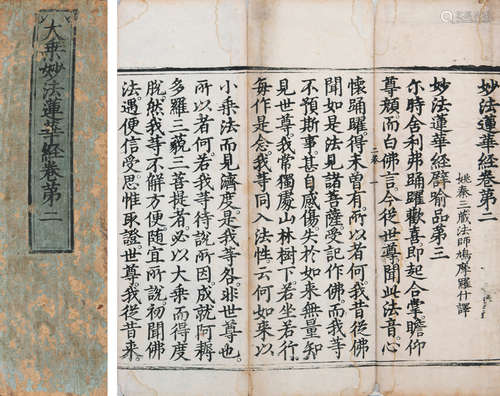 大乘妙法蓮華經卷第二
妙法蓮華經卷第二
姚秦三藏法師鳩摩羅什譯
妙法蓮華經譬喻品第三
尒時舍利弗踊躍歡喜即起合掌。瞻仰
尊顏。而白佛言。今從世尊聞此法音。心
懷踊躍。得未曾有。所以者何。我昔從佛
聞如是法。見諸菩薩。受記作佛。而我等
不預斯事。甚自感傷。失於如來。無量知
見。世尊。我常獨處。山林樹下。若坐若行。
每作是念。我等同入法性。云何如來。以
小乘法。而見濟度。是我等咎。非世尊也。
所以者何。若我等待說所因。成就阿耨
多羅三藐三菩提者。必以大乘。而得度
脫。然我等不解方便。隨宜所說。初聞佛
法。遇便信受。思惟取證。世尊。我從昔來。
二卷
一